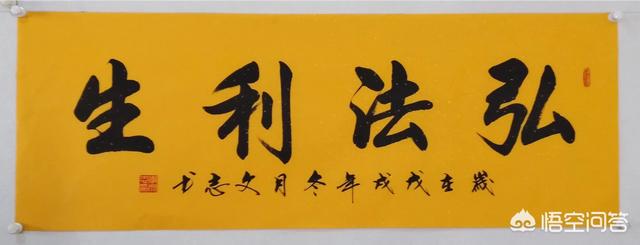 弘法利生
歲在戊戌年冬月文志书
悟空问答